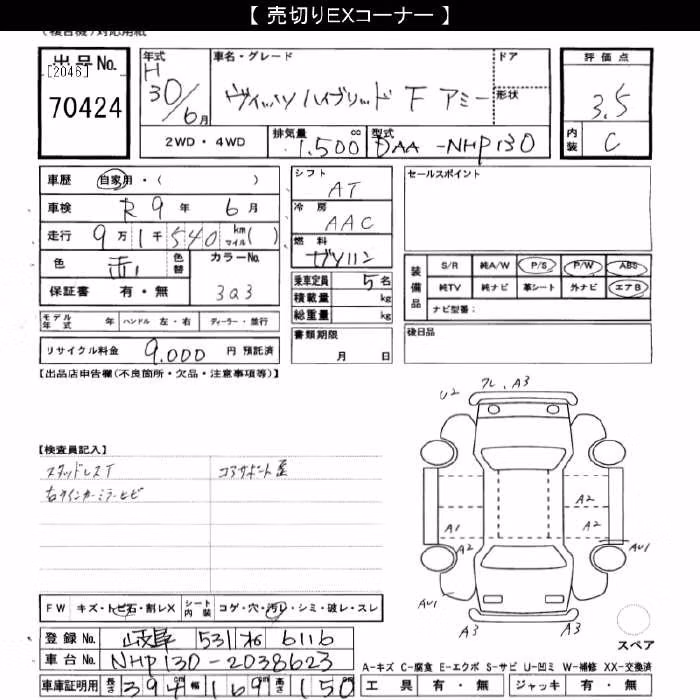 【 売切りEXコーナー 】
出品No.
[2046]
70424
年式 H 30/6月
車名・グレード
ヴィッツ ハイブリッド F アミー
ドア
形状
評価点
3.5
内装 C
2WD・4WD
排気量 1,500 cc
型式 DAA-NHP130
車歴 自家用・( )
車検 R 9 年 6 月
走行 9 万 1 千 540 km マイル( )
色 赤 色替
カラーNo. 3Q3
保証書 有・無
シフト AT
冷房 AAC
燃料 ガソリン
乗車定員 5 名
積載量 kg
総重量 kg
セールスポイント
装備品
S/R 純A/W P/S P/W ABS
純TV 純ナビ 革シート 外ナビ エアB
ナビ型番:
モデル年式 年 ハンドル 左・右 ディーラー・並行
書類期限 月 日
後日品
リサイクル料金 9,000 円 預託済
【出品店申告欄(不良箇所・欠品・注意事項等)】
U2 フレ、A3
【検査員記入】
スタッドレスT
コアサポート歪
右ウインカーミラーヒビ
A2
A1 A2
A2 AU1
AU1
A3 A3
FW キズ・トビ石・割レX シート内装 コゲ・穴・汚レ・シミ・破レ・スレ
スペア
登録No. 岐阜 531 6116
車台No. NHP130-2038623
A-キズ C-腐食 E-エクボ S-サビ U-凹ミ W-補修 XX-交換済
車庫証明用 長さ 394 cm 幅 169 cm 高さ 150 cm
工具 有・無 ジャッキ 有・無